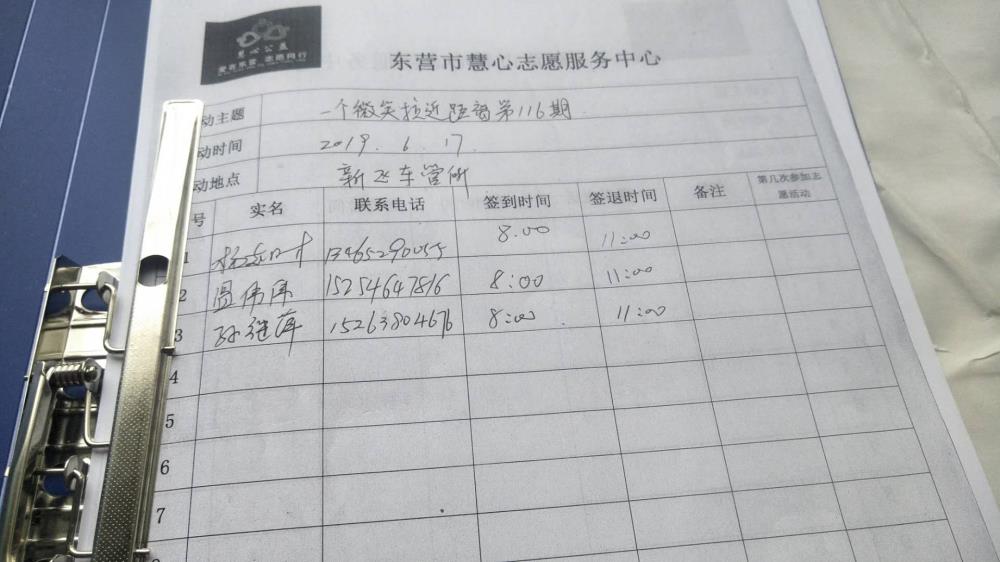 慧心公益
爱在东营 志愿同行
东营市慧心志愿服务中心
动主题 一个微笑拉近距离第116期
动时间 2019.6.17.
动地点 新飞车管所
号 实名 联系电话 签到时间 签退时间 备注 第几次参加志愿活动
1 8.00 11:00
2 15254647816 8:00 11:00
3 孙继萍 15263804676 8:00 11:00
4
5
6
7